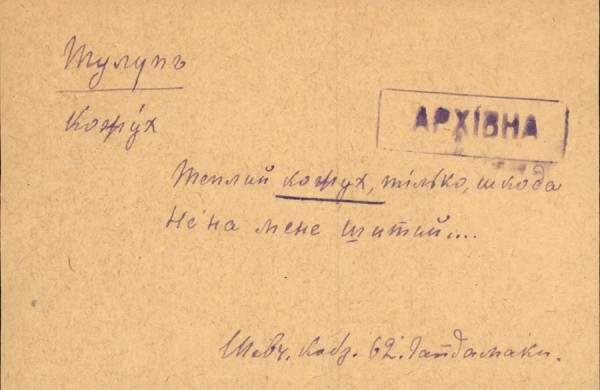 Тулупъ
Кожу́х
АРХІВНА
Теплий кожух, тілько, шкода
Не на мене шитий....
Шевч. Кобз. 62. Гайдамаки.